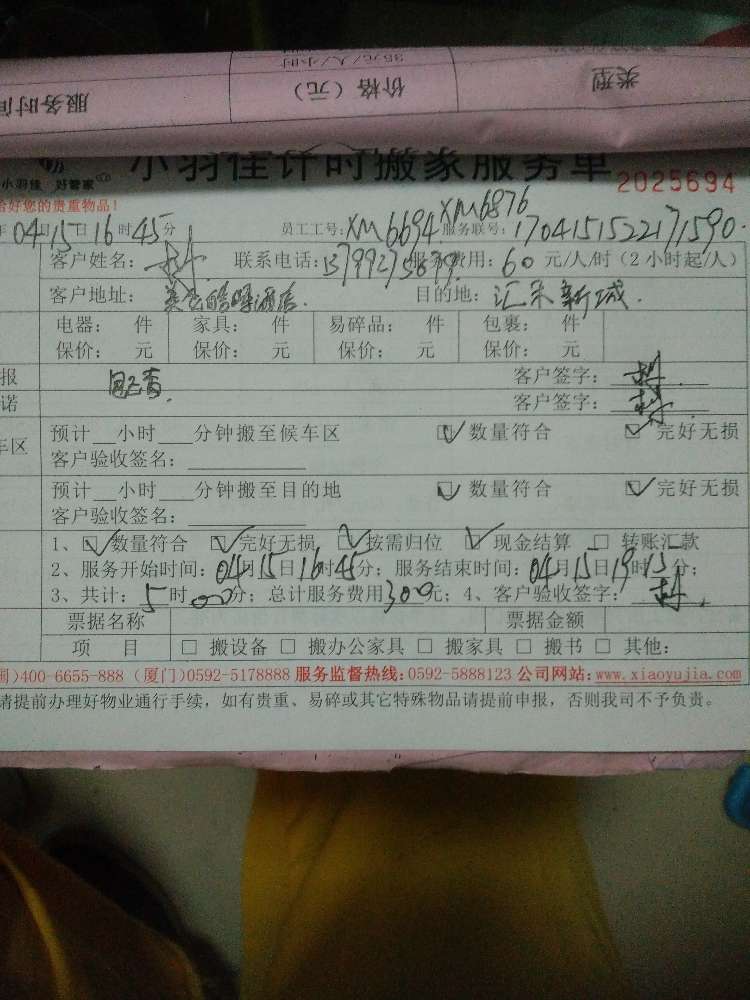 35元/人/小时
类型 价格（元） 服务时间
小羽佳 好管家
小羽佳计时搬家服务单 2025694
给好您的贵重物品！
年04月15日16时45分 员工工号：XM6694 XM6876 服务联号：1704151522171590
客户姓名：林 联系电话：费用：60元/人/时（2小时起/人）
客户地址：酒店 目的地：汇禾新城
电器： 件 家具： 件 易碎品： 件 包裹： 件
保价： 元 保价： 元 保价： 元 保价： 元
报 客户签字：林
诺 客户签字：林
预计__小时___分钟搬至候车区 ☑数量符合 ☑完好无损
车区 客户验收签名：
预计__小时___分钟搬至目的地 ☑数量符合 ☑完好无损
客户验收签名：
1、☑数量符合 ☑完好无损 ☑按需归位 ☑现金结算 □ 转账汇款
2、服务开始时间：04月15日16时45分；服务结束时间：04月15日19时15分；
3、共计：5时00分；总计服务费用300元；4、客户验收签字：林
票据名称 票据金额
项 目 □ 搬设备 □ 搬办公家具 □ 搬家具 □ 搬书 □ 其他：
)400-6655-888 (厦门)0592-5178888 服务监督热线：0592-5888123 公司网站：www.xiaoyujia.com
请提前办理好物业通行手续，如有贵重、易碎或其它特殊物品请提前申报，否则我司不予负责。